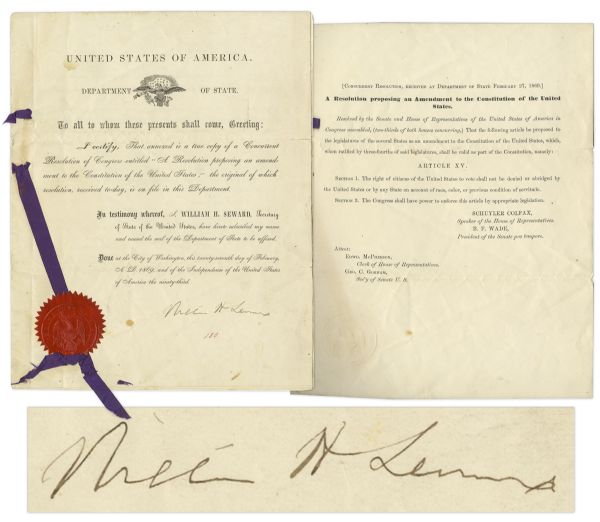 UNITED STATES OF AMERICA.
DEPARTMENT OF STATE.
To all to whom these presents shall come, Greeting:
I certify, That annexed is a true copy of a Concurrent
Resolution of Congress entitled "A Resolution proposing an amend-
ment to the Constitution of the United States;" the original of which
resolution, received to-day, is on file in this Department.
In testimony whereof, I, WILLIAM H. SEWARD, Secretary
of State of the United States, have hereunto subscribed my name
and caused the seal of the Department of State to be affixed.
Done at the City of Washington, this twenty-seventh day of February,
A. D. 1869, and of the Independence of the United States
of America the ninety-third.
William H Seward
180
[CONCURRENT RESOLUTION, RECEIVED AT DEPARTMENT OF STATE FEBRUARY 27, 1869.]
A Resolution proposing an Amendment to the Constitution of the United
States.
Resolved by the Senate and House of Representatives of the United States of America in
Congress assembled, (two-thirds of both houses concurring,) That the following article be proposed to
the legislatures of the several States as an amendment to the Constitution of the United States, which,
when ratified by three-fourths of said legislatures, shall be valid as part of the Constitution, namely:
ARTICLE XV.
SECTION 1. The right of citizens of the United States to vote shall not be denied or abridged by
the United States or by any State on account of race, color, or previous condition of servitude.
SECTION 2. The Congress shall have power to enforce this article by appropriate legislation.
SCHUYLER COLFAX,
Speaker of the House of Representatives.
B. F. WADE,
President of the Senate pro tempore.
Attest:
EDWD. MCPHERSON,
Clerk of House of Representatives.
GEO. C. GORHAM,
Sec'y of Senate U. S.
William H Seward